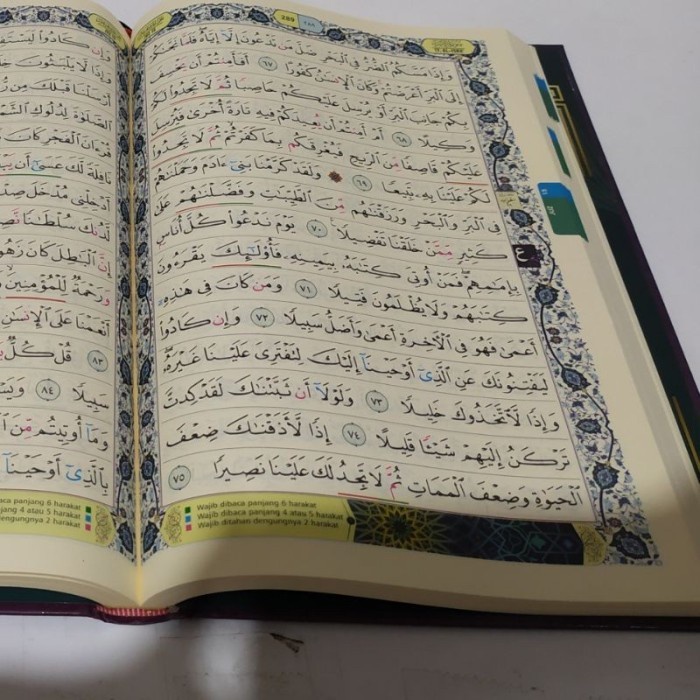 289 ٢٨٩
وَإِذَا مَسَّكُمُ الضُّرُّ فِى الْبَحْرِ ضَلَّ مَن تَدْعُونَ إِلَّآ إِيَّاهُ فَلَمَّا نَجَّىٰكُمْ
إِلَى الْبَرِّ أَعْرَضْتُمْ وَكَانَ الْإِنسَٰنُ كَفُورًا ٦٧ أَفَأَمِنتُمْ أَن يَخْسِفَ
بِكُمْ جَانِبَ الْبَرِّ أَوْ يُرْسِلَ عَلَيْكُمْ حَاصِبًا ثُمَّ لَا تَجِدُوا لَكُمْ
وَكِيلًا ٦٨ أَمْ أَمِنتُمْ أَن يُعِيدَكُمْ فِيهِ تَارَةً أُخْرَىٰ فَيُرْسِلَ
عَلَيْكُمْ قَاصِفًا مِّنَ الرِّيحِ فَيُغْرِقَكُم بِمَا كَفَرْتُمْ ثُمَّ لَا تَجِدُوا
لَكُمْ عَلَيْنَا بِهِۦ تَبِيعًا ٦٩ وَلَقَدْ كَرَّمْنَا بَنِىٓ ءَادَمَ وَحَمَلْنَٰهُمْ
فِى الْبَرِّ وَالْبَحْرِ وَرَزَقْنَٰهُم مِّنَ الطَّيِّبَٰتِ وَفَضَّلْنَٰهُمْ عَلَىٰ
كَثِيرٍ مِّمَّنْ خَلَقْنَا تَفْضِيلًا ٧٠ يَوْمَ نَدْعُوا كُلَّ أُنَاسٍ
بِإِمَٰمِهِمْ فَمَنْ أُوتِىَ كِتَٰبَهُۥ بِيَمِينِهِۦ فَأُولَٰٓئِكَ يَقْرَءُونَ
كِتَٰبَهُمْ وَلَا يُظْلَمُونَ فَتِيلًا ٧١ وَمَن كَانَ فِى هَٰذِهِۦٓ
أَعْمَىٰ فَهُوَ فِى الْآخِرَةِ أَعْمَىٰ وَأَضَلُّ سَبِيلًا ٧٢ وَإِن كَادُوا
لَيَفْتِنُونَكَ عَنِ الَّذِىٓ أَوْحَيْنَآ إِلَيْكَ لِتَفْتَرِىَ عَلَيْنَا غَيْرَهُۥ
وَإِذًا لَّاتَّخَذُوكَ خَلِيلًا ٧٣ وَلَوْلَآ أَن ثَبَّتْنَٰكَ لَقَدْ كِدتَّ
تَرْكَنُ إِلَيْهِمْ شَيْئًا قَلِيلًا ٧٤ إِذًا لَّأَذَقْنَٰكَ ضِعْفَ
الْحَيَوٰةِ وَضِعْفَ الْمَمَاتِ ثُمَّ لَا تَجِدُ لَكَ عَلَيْنَا نَصِيرًا ٧٥
ع
Wajib dibaca panjang 6 harakat
Wajib dibaca panjang 4 atau 5 harakat
Wajib ditahan dengungnya 2 harakat
وَإِن كَادُوا لَيَسْتَفِ
وَإِذًا لَّا يَلْبَثُونَ
أَرْسَلْنَا قَبْلَكَ مِن
الصَّلَوٰةَ لِدُلُوكِ الشَّمْ
قُرْءَانَ الْفَجْرِ كَانَ
نَافِلَةً لَّكَ عَسَىٰٓ أَن
أَدْخِلْنِى مُدْخَلَ صِدْ
لَّدُنكَ سُلْطَٰنًا نَّصِ
إِنَّ الْبَٰطِلَ كَانَ زَهُو
وَرَحْمَةٌ لِّلْمُؤْمِنِينَ
أَنْعَمْنَا عَلَى الْإِنسَٰنِ
٨٣ قُلْ كُلٌّ
سَبِيلًا ٨٤
وَمَآ أُوتِيتُم مِّنَ
بِالَّذِىٓ أَوْحَيْنَآ
aca panjang 6 harakat
jang 4 atau 5 harakat
dengungnya 2 harakat